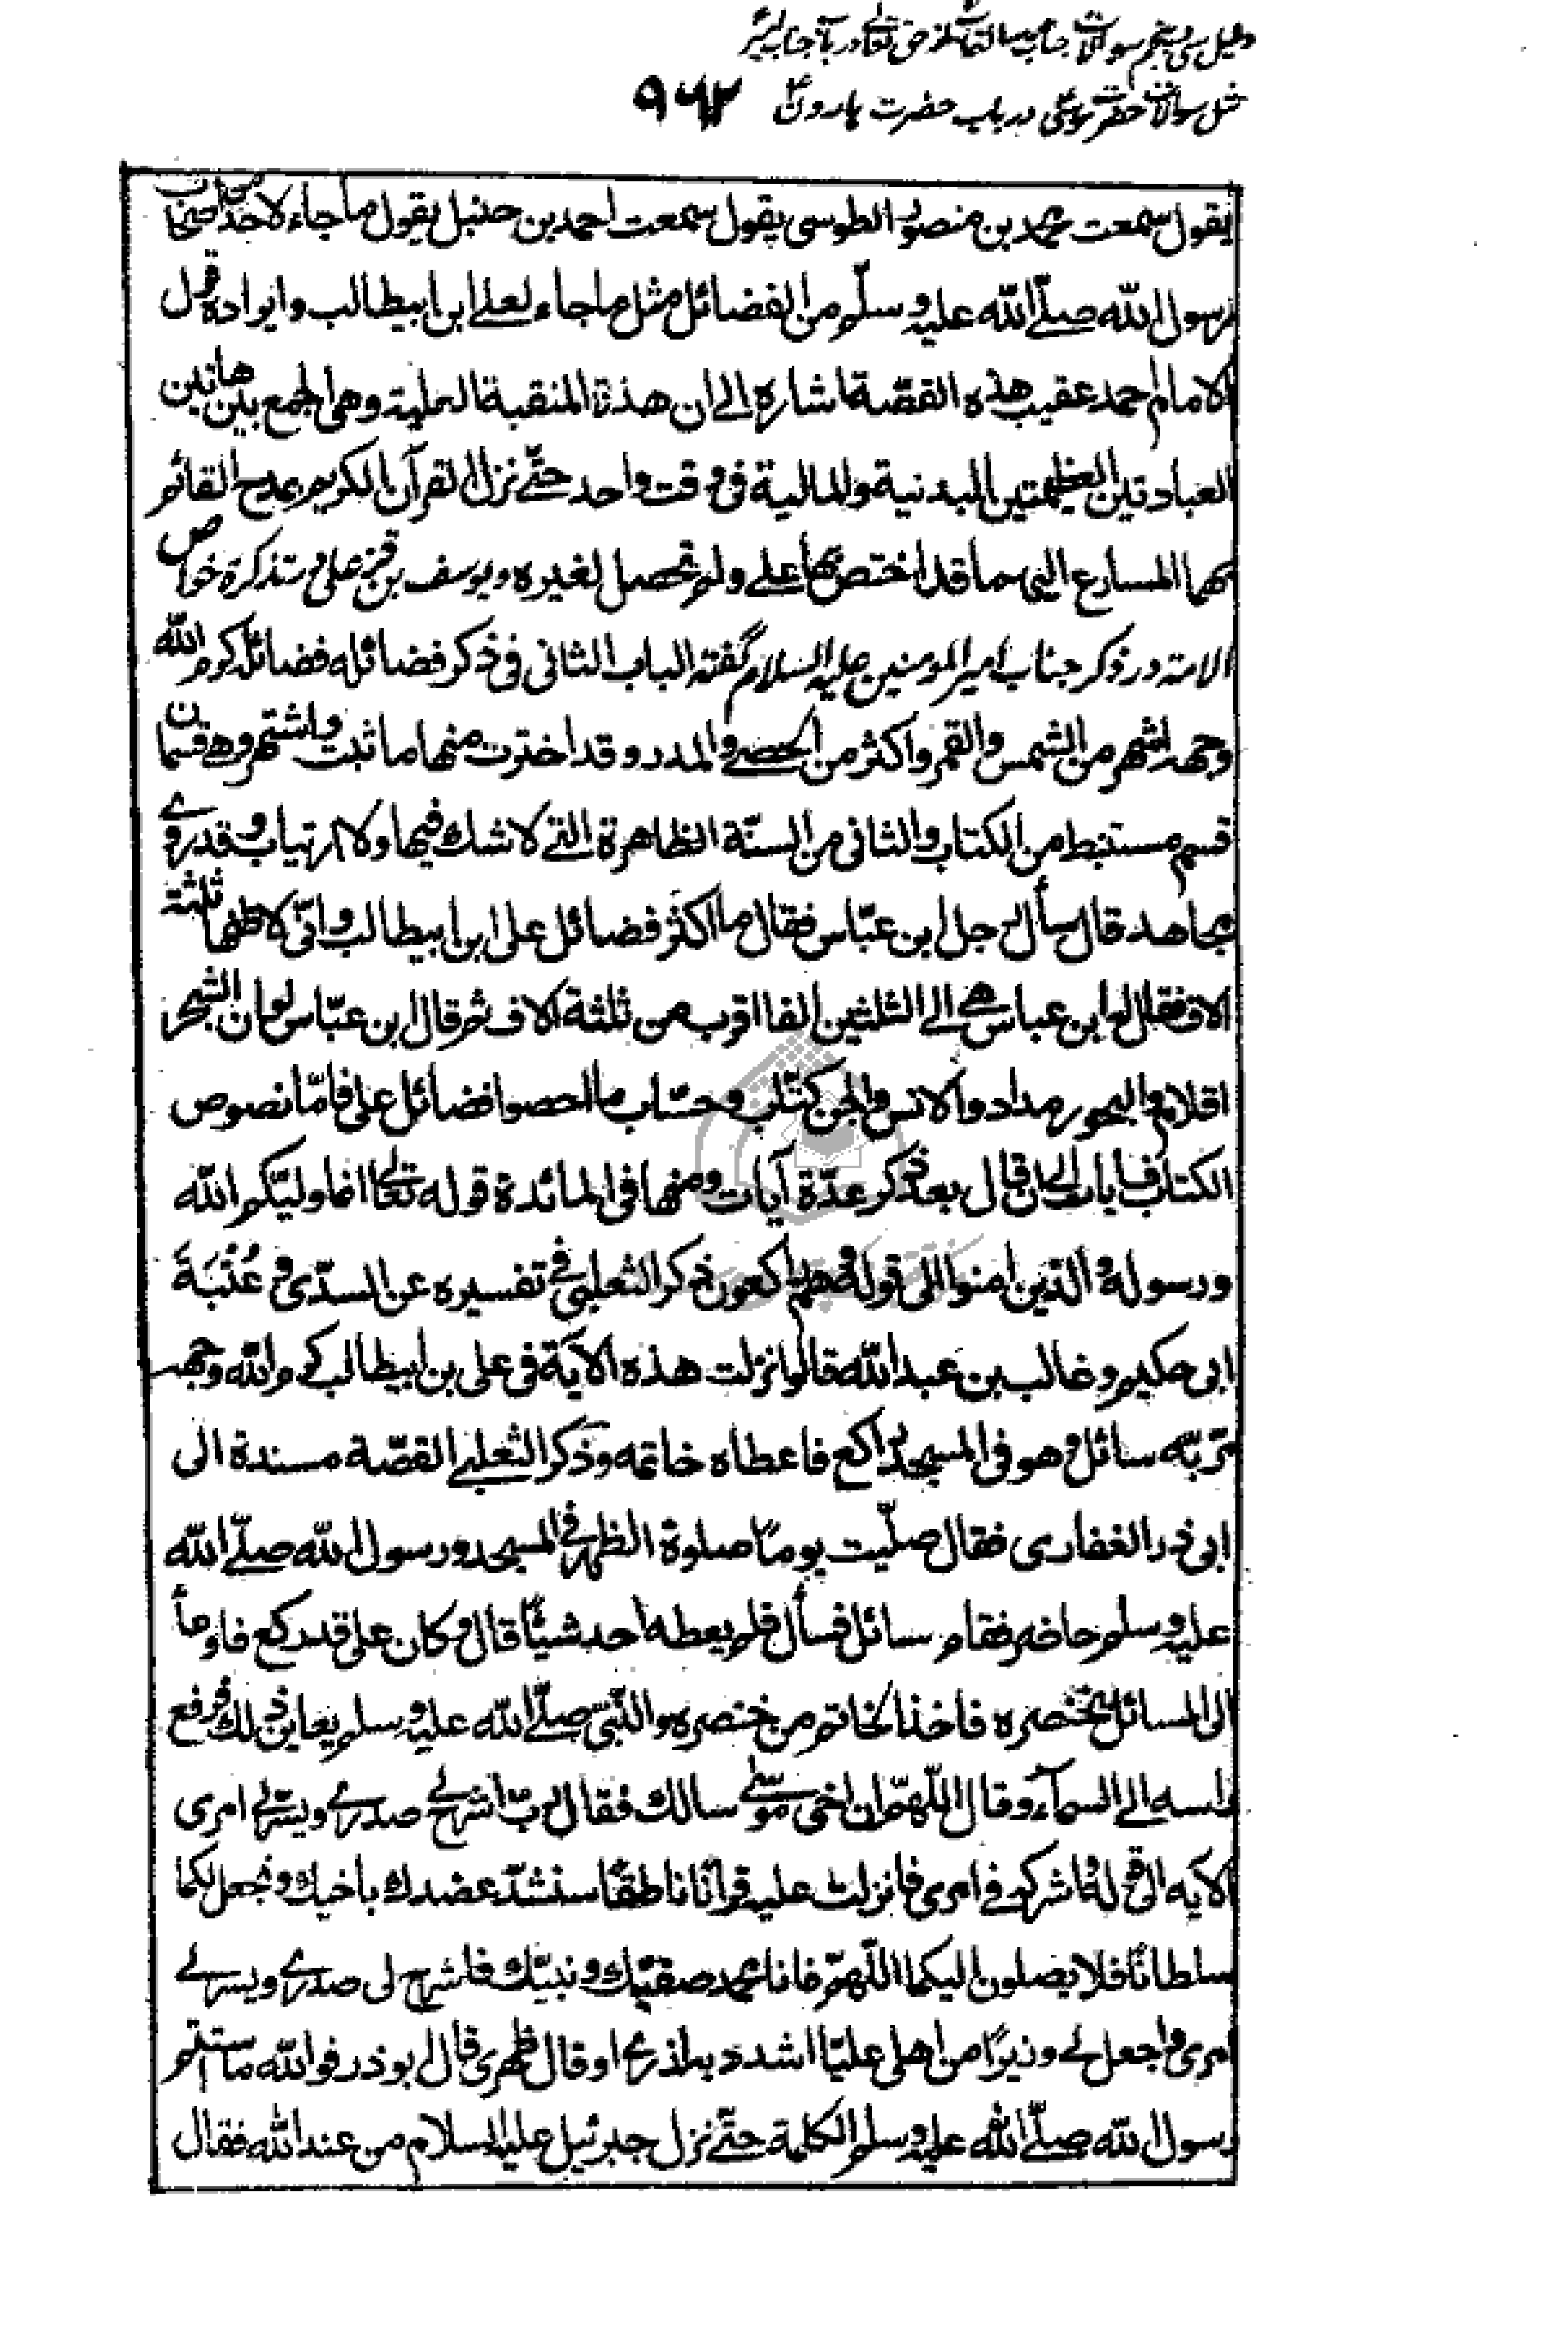 دلیل سی و پنجم سوالات جناب رسالتمآب از حق تعالی درباب جناب امیر
مثل سوالات حضرت موسی در باب حضرت هارون ۹۶۲
یقول سمعت محمد بن منصور الطوسی یقول سمعت احمد بن حنبل یقول ما جاء لاحد من اصحاب
رسول الله صلّے الله علیه وسلّم من الفضائل مثل ما جاء لعلے ابن ابیطالب وایراده قول
الامام احمد عقیب هذه القصّة اشارة الے ان هذة المنقبة العلیة وهی الجمع بین هاتین
العبادتین العظیمتین البدنیة والمالیة فی وقت واحد حتّے نزل القرآن الکریم بمدح القائم
بهما المسارع الیهما قد اختص بها علے ولم تحصل لغیره ویوسف بن قزعلی در تذکرة خواص
الامة در ذکر جناب امیر المومنین علیه السلام گفته الباب الثانی فی ذکر فضائله فضائله کرم الله
وجهه اشهر من الشمس والقمر واکثر من الحصے والمدر وقد اخترت منها ما ثبت واشتهر وهے قسمان
قسم مستنبط من الکتاب والثانی من السنّة الظاهرة التے لا شك فیها ولا ارتیاب وقد روے
مجاهد قال سأل رجل ابن عبّاس فقال ما اکثر فضائل علی ابن ابیطالب وانّی لاظنها ثلثة
الاف فقال له ابن عباس هے الے الثلثین الفا اقرب من ثلثة الاف ثم قال ابن عبّاس لو ان الشجر
اقلام والبحور مداد والانس والجن کتّاب وحسّاب ما احصوا فضائل علی فامّا نصوص
الکتاب فایات الے ان قال بعد ذکر عدّة آیات ومنها فی المائدة قوله تعالے انما ولیّکم الله
ورسوله والذین امنوا الی قوله وهم راکعون ذکر الثعلبی فے تفسیره عن السدّی و عُتْبَةَ
ابی حکیم وغالب بن عبد الله قالوا نزلت هذه الآیة فی علی بن ابیطالب کرم الله وجهه
مرّ به سائل وهو فی المسجد راکع فاعطاه خاتمه وذکر الثعلبے القصّة مسندة الی
ابی ذر الغفاری فقال صلّیت یومًا صلوة الظهر فے المسجد ورسول الله صلّے الله
علیه وسلم حاضر فقام سائل فسأل فلم یعطه احد شیئًا قال وکان علی قد رکع فاومأ
الی السائل بخنصره فاخذ الخاتم من خنصره والنّبی صلّے الله علیه وسلم یعاین ذلك فرفع
راسه الے السمآء وقال اللّهمّ ان اخی موسٰے سالك فقال ربّ اشرح لے صدرے ویسّر لے امری
الآیه الی قوله واشرکه فے امری فانزلت علیه قرآنا ناطقًا سنشدّ عضدك باخیك ونجعل لکما
سلطانًا فلا یصلون الیکما اللّهمّ فانا محمد صفیّك ونبیّك فاشرح لی صدرے ویسر لے
امری واجعل لے وزیرًا من اهلی علیّا اشدد به ازری او قال ظهری قال ابوذر فوالله ما استتم
رسول الله صلّے الله علیه وسلم الکلمة حتّے نزل جبرئیل علیه السلام من عند الله فقال